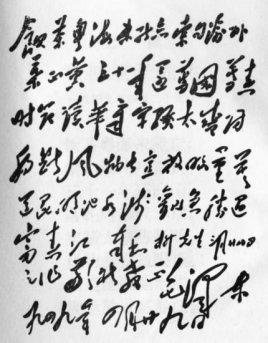 飲茶粤海未能忘索句渝州
葉正黄三十一年還舊國落花
时节读华章牢骚太盛防
肠断风物长宜放眼量莫
道昆明池水浅觀魚勝过
富春江 奉和柳先生
之作 敬祈教正 毛泽东
一九四九年四月廿九日